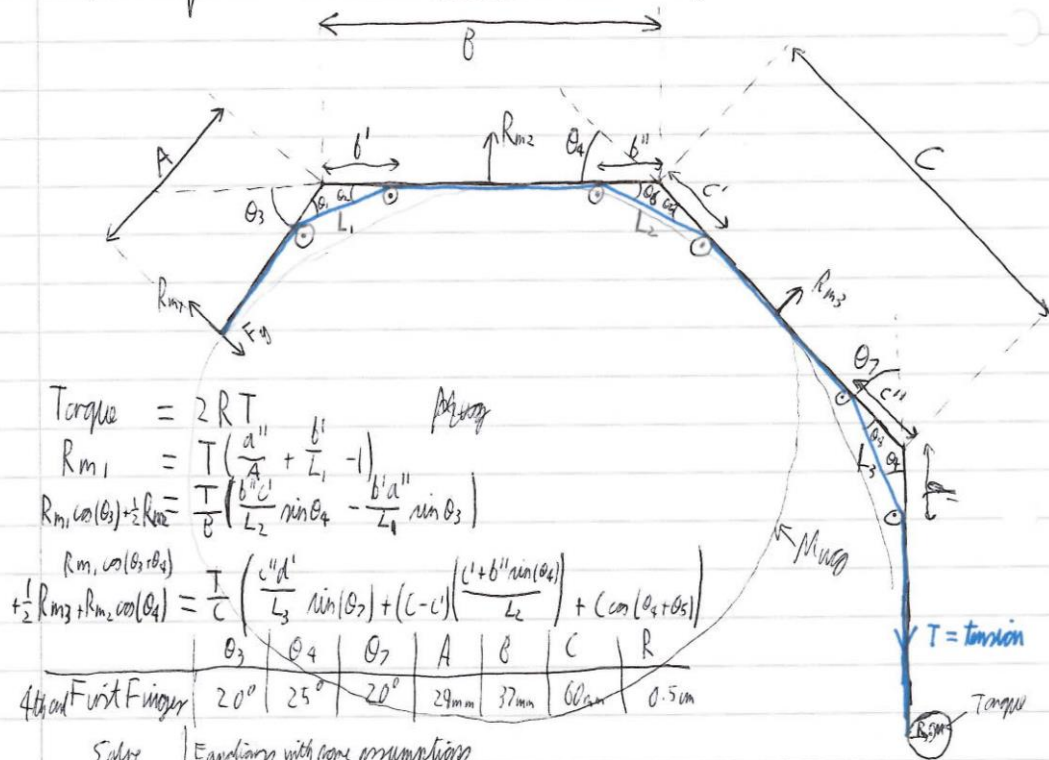 B
A
b'
R_m2
θ_4
b''
C
c'
θ_3
θ_1
L_1
L_2
R_m1
R_m3
θ_7
c''
L_3
Torque = 2RT
R_m1 = T(a''/A + b'/L_1 - 1)
R_m1 cos(θ_3) + 1/2 R_m2 = T/B (b''c'/L_2 sinθ_4 - b'a''/L_1 sinθ_3)
R_m1 cos(θ_3+θ_4)
+ 1/2 R_m3 + R_m2 cos(θ_4) = T/C (c''d'/L_3 sin(θ_7) + (C-c')(c'+b'' sin(θ_4)/L_2) + C cos(θ_4+θ_5))
T = tension
θ_3 θ_4 θ_7 A B C R
First Finger 20° 25° 20° 29mm 37mm 60mm 0.5cm
Torque
Equations with some assumptions